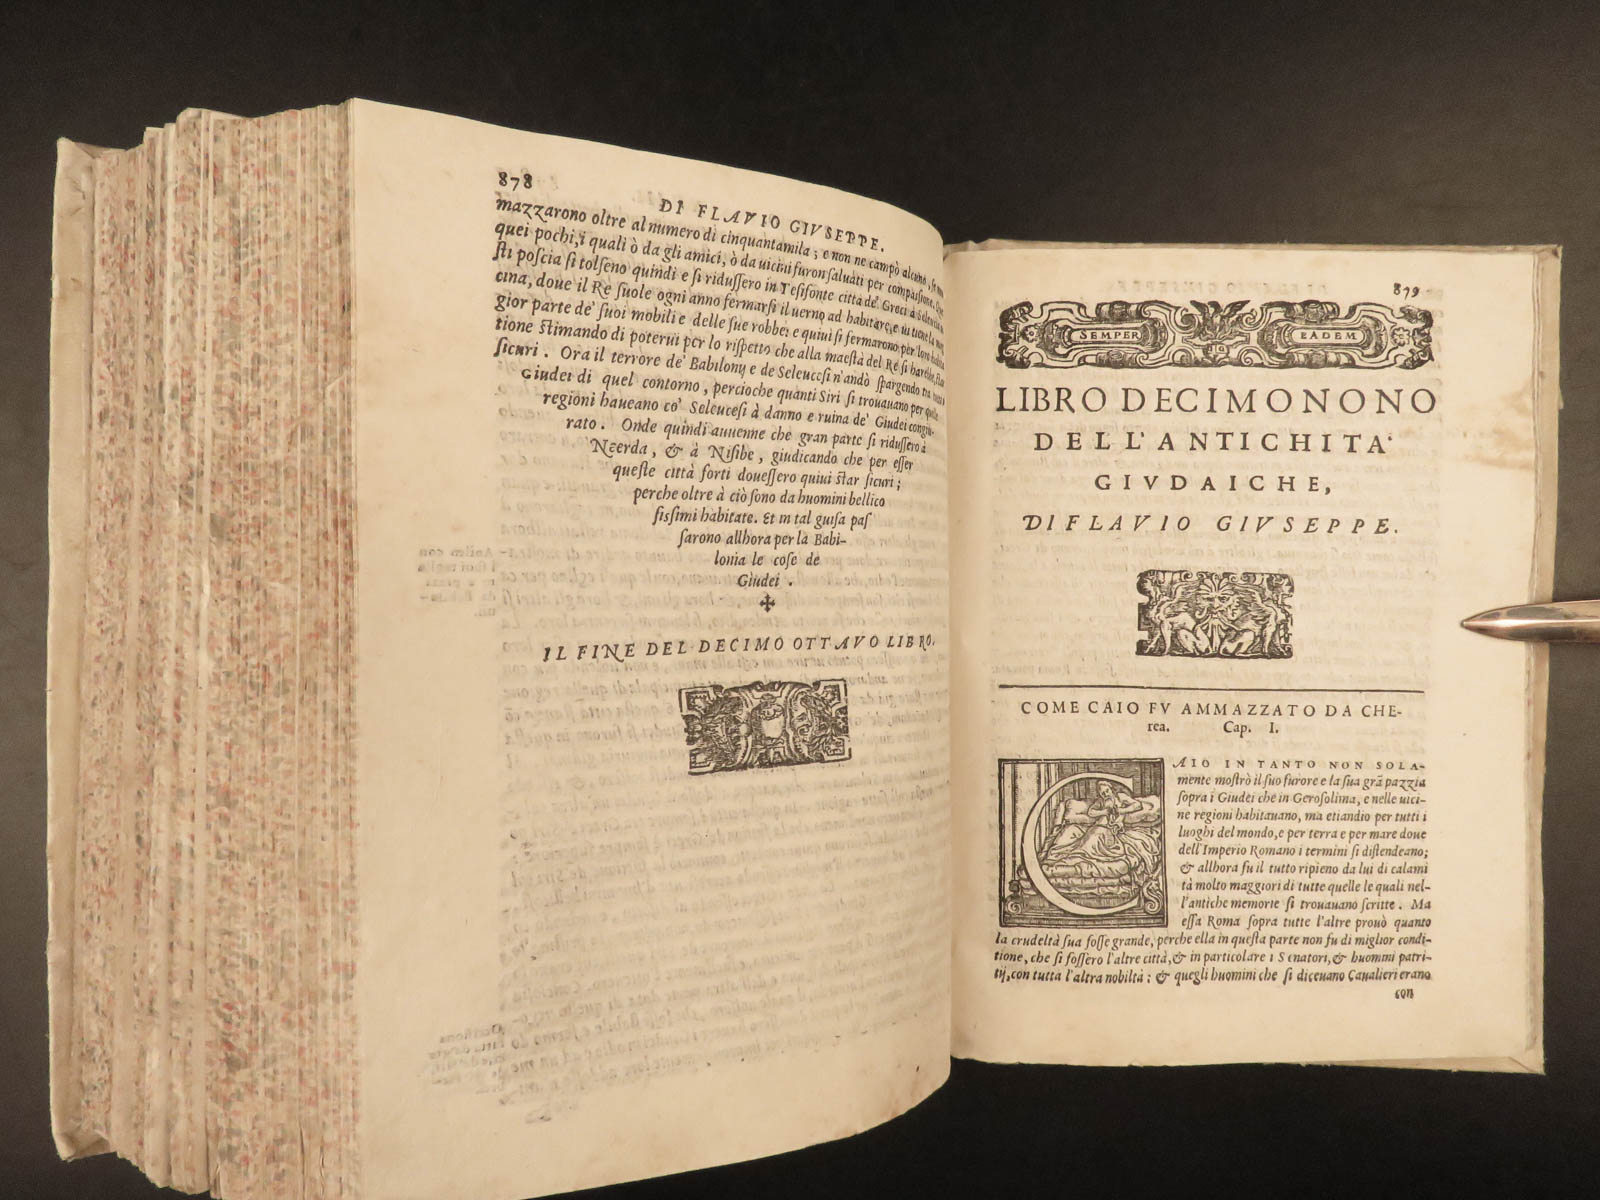 878
DI FLAVIO GIVSEPPE.
mazzarono oltre al numero di cinquantamila; e non ne campò alcuno, se non
quei pochi, i quali ò da gli amici, ò da uicini furon saluati per compassione. Que
sti poscia si tolseno quindi e si ridussero in Tesifonte città de' Greci à Seleucia ui
cina, doue il Re suole ogni anno fermarsi il uerno ad habitare, e ui tiene la mag
gior parte de' suoi mobili e delle sue robbe: e quiui si fermarono per loro habita
tione stimando di poterui per lo rispetto che alla maestà del Re si harebbe, star
sicuri. Ora il terrore de' Babilonij e de Seleucesi n'andò spargendo tra tutti i
Giudei di quel contorno, percioche quanti Siri si trouauano per quelle
regioni haueano co' Seleucesi à danno e ruina de' Giudei congiu-
rato. Onde quindi auuenne che gran parte si ridussero à
Neerda, & à Nisibe, giudicando che per esser
queste città forti douessero quiui star sicuri;
perche oltre à ciò sono da huomini bellico
sissimi habitate. Et in tal guisa pas
sarono allhora per la Babi-
lonia le cose de
Giudei.
IL FINE DEL DECIMO OTTAVO LIBRO.
879
SEMPER EADEM
LIBRO DECIMONONO
DELL'ANTICHITA'
GIVDAICHE,
DI FLAVIO GIVSEPPE.
COME CAIO FV AMMAZZATO DA CHE-
rea. Cap. I.
CAIO IN TANTO NON SOLA-
mente mostrò il suo furore e la sua grã pazzia
sopra i Giudei che in Gerosolima, e nelle uici-
ne regioni habitauano, ma etiandio per tutti i
luoghi del mondo, e per terra e per mare doue
dell'Imperio Romano i termini si distendeano;
& allhora fu il tutto ripieno da lui di calami
tà molto maggiori di tutte quelle le quali nel-
l'antiche memorie si trouauano scritte. Ma
essa Roma sopra tutte l'altre prouò quanto
la crudeltà sua fosse grande, perche ella in questa parte non fu di miglior condi-
tione, che si fossero l'altre città, & in particolare i Senatori, & huomini patri-
tij, con tutta l'altra nobiltà: & quegli huomini che si diceuano Caualieri erano
con